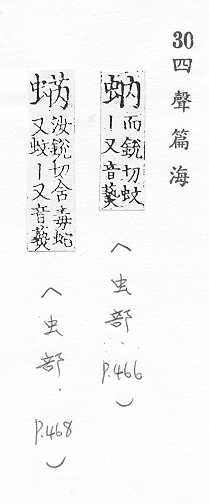 30四聲篇海
蚋而銳切蚊丨又音爇
︵虫部．P.466︶
蜹汝銳切含毒蛇又蚊丨又音爇
︵虫部．P.468︶